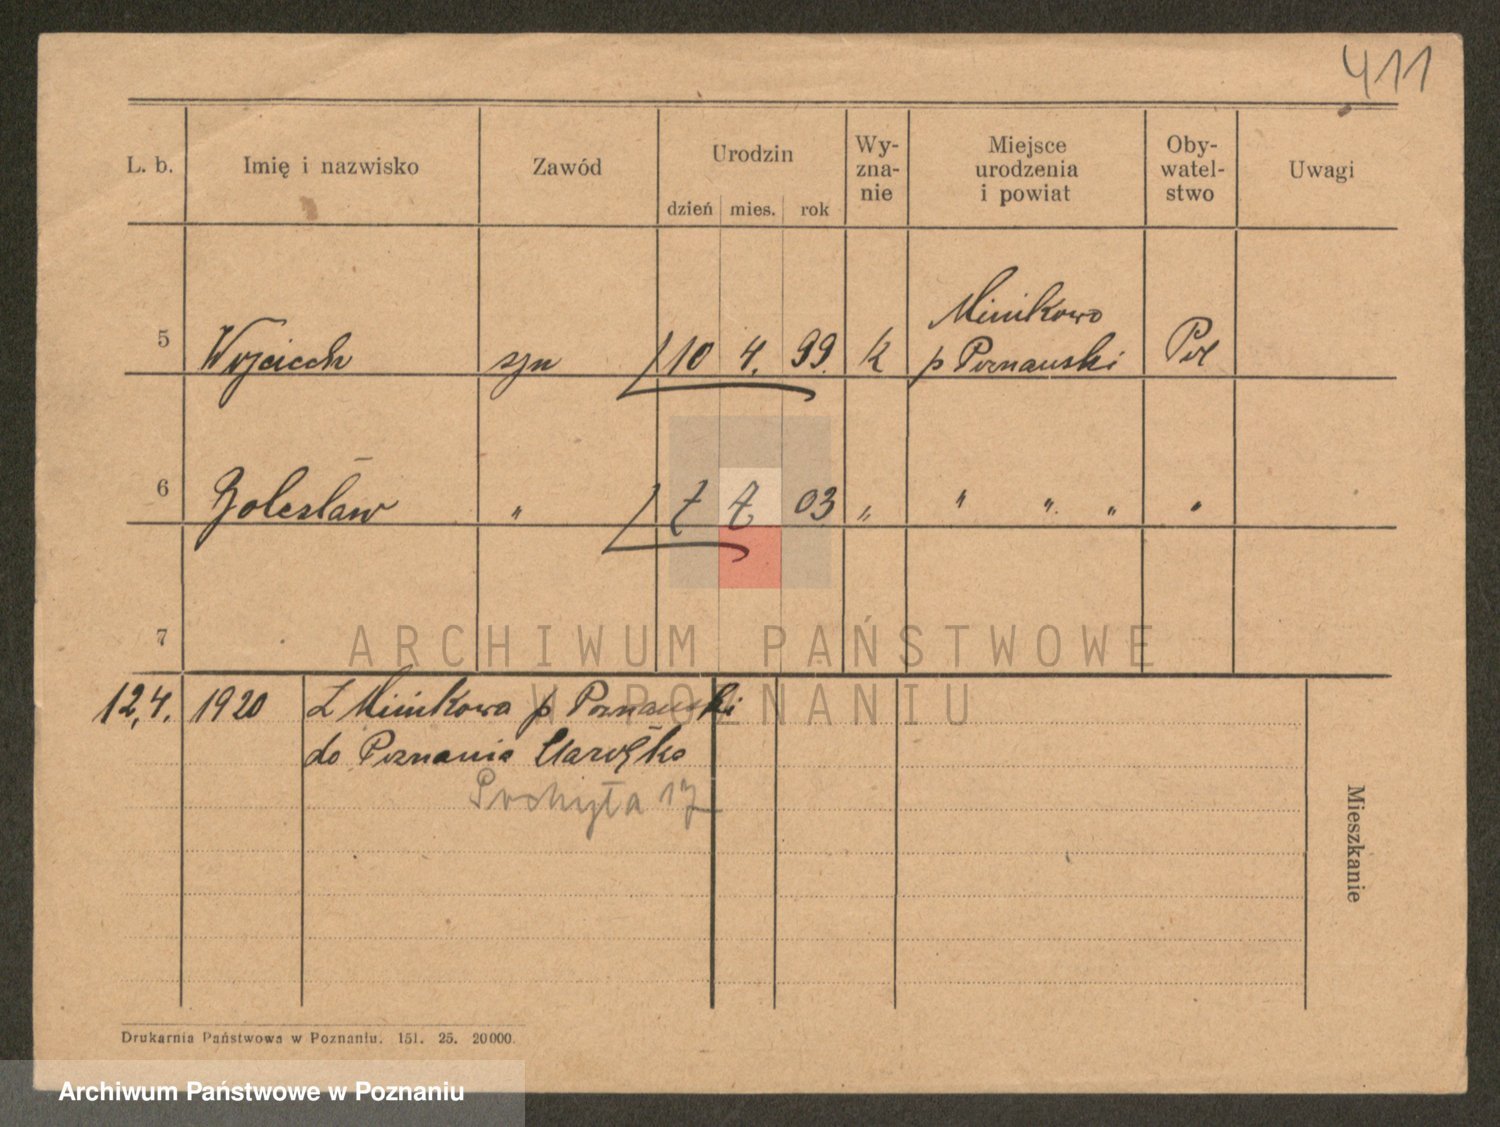 411
L. b. Imię i nazwisko Zawód Urodzin Wy- Miejsce Oby- Uwagi
zna- urodzenia watel-
nie i powiat stwo
dzień mies. rok
Minikowo
5 Wojciech syn 10 4. 99. k p Poznański Pol
6 Bolesław " 03 " " " " "
7
ARCHIWUM PAŃSTWOWE
W POZNANIU
12.4. 1920 Z Minikowa p Poznański
do Poznania
17
Mieszkanie
Drukarnia Państwowa w Poznaniu. 151. 25. 20000.
Archiwum Państwowe w Poznaniu